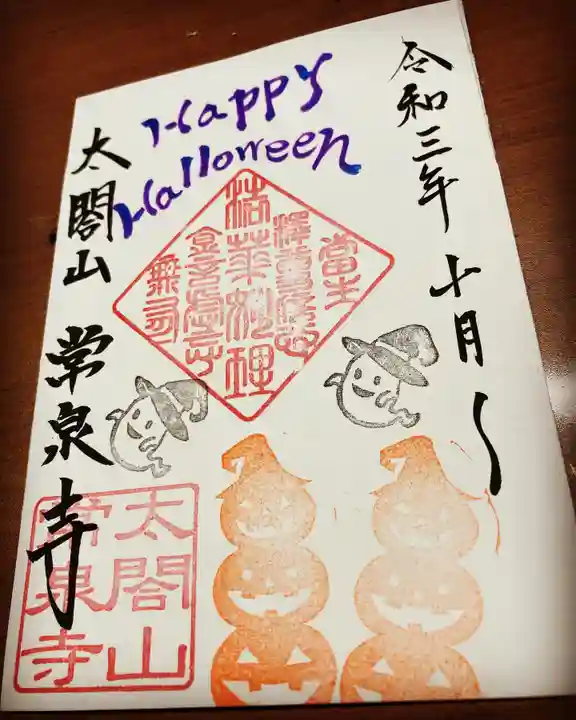 令和三年十月
Happy
Halloween
太閤山 常泉寺
太閤山
常泉寺